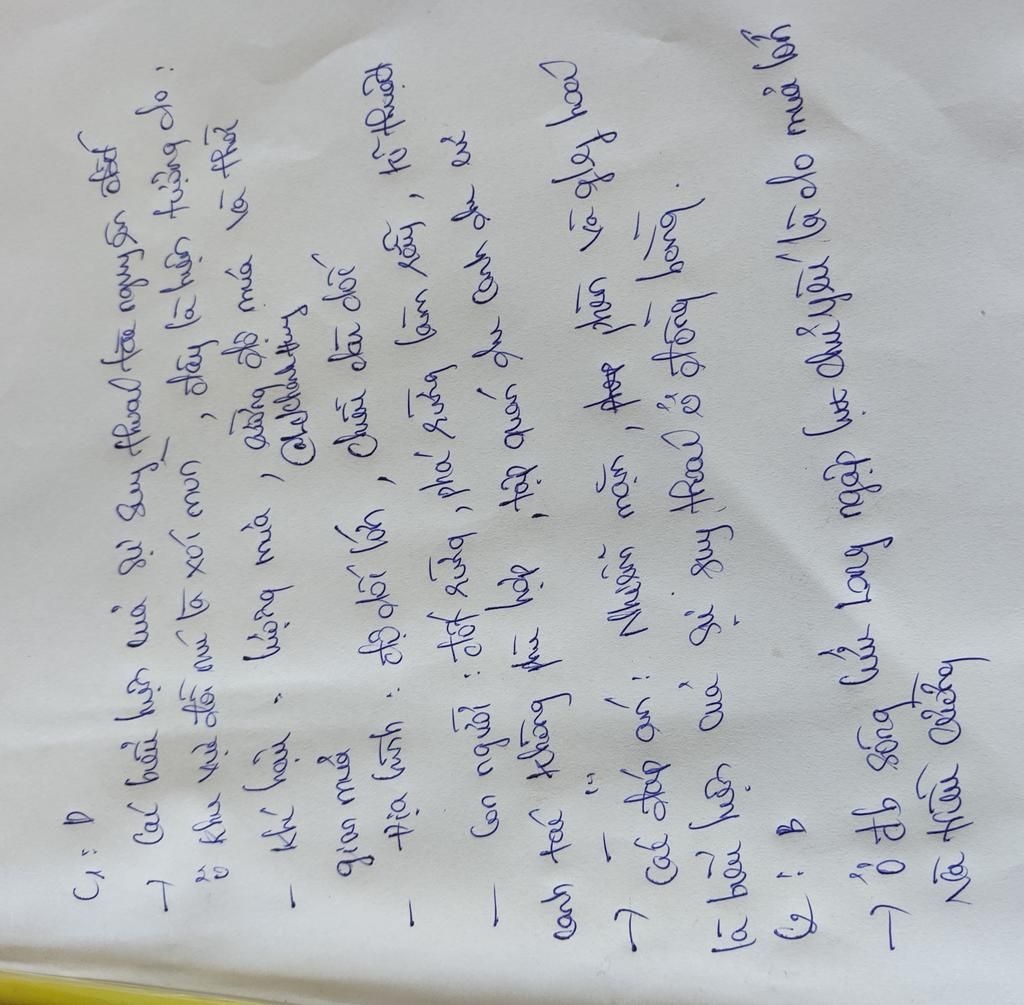 C1: D
→ Các biểu hiện của sự suy thoái tài nguyên đất
ở khu vực đồi núi là xói mòn, đây là hiện tượng do:
- Khí hậu: lượng mưa, cường độ mưa và thời
gian mưa
- Địa hình: độ dốc lớn, chiều dài dốc
- Con người: đốt rừng, phá rừng làm rẫy, kĩ thuật
canh tác không phù hợp, tập quán du canh du cư
- ...
→ Các đáp án: Nhiễm mặn, phèn và glây hoá
là biểu hiện của sự suy thoái ở đồng bằng.
C2: B
→ Ở đb sông Cửu Long ngập lụt chủ yếu là do mưa lớn
và triều cường